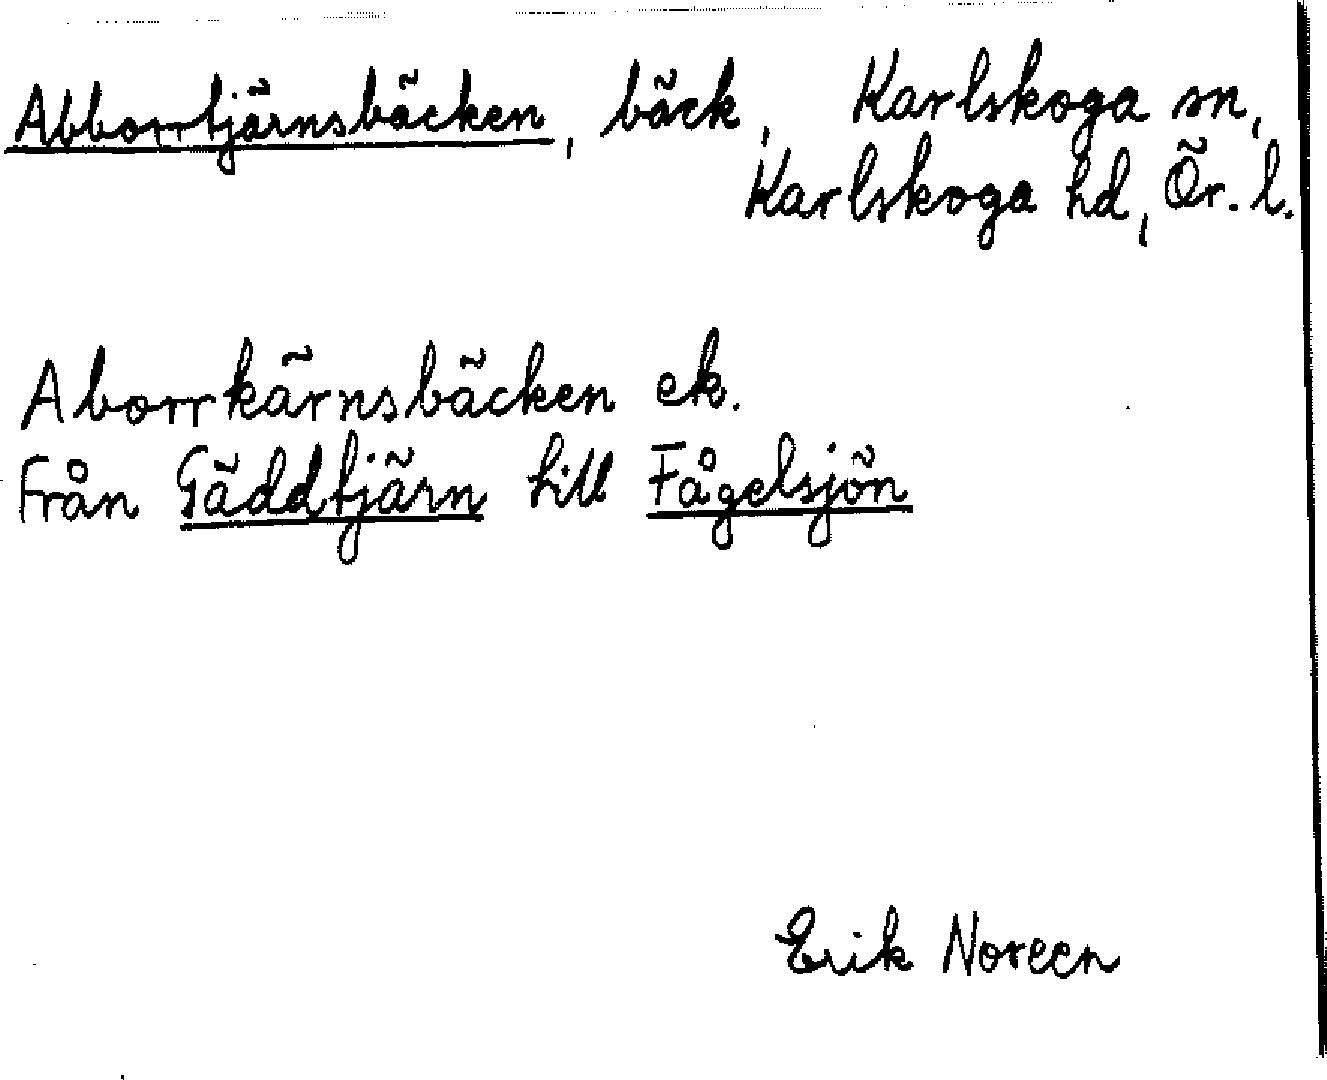 Abborrtjärnsbäcken, bäck, Karlskoga sn,
Karlskoga hd, Ör. l.
Aborrkärnsbäcken ek.
Från Gäddtjärn till Fågelsjön
Erik Noreen